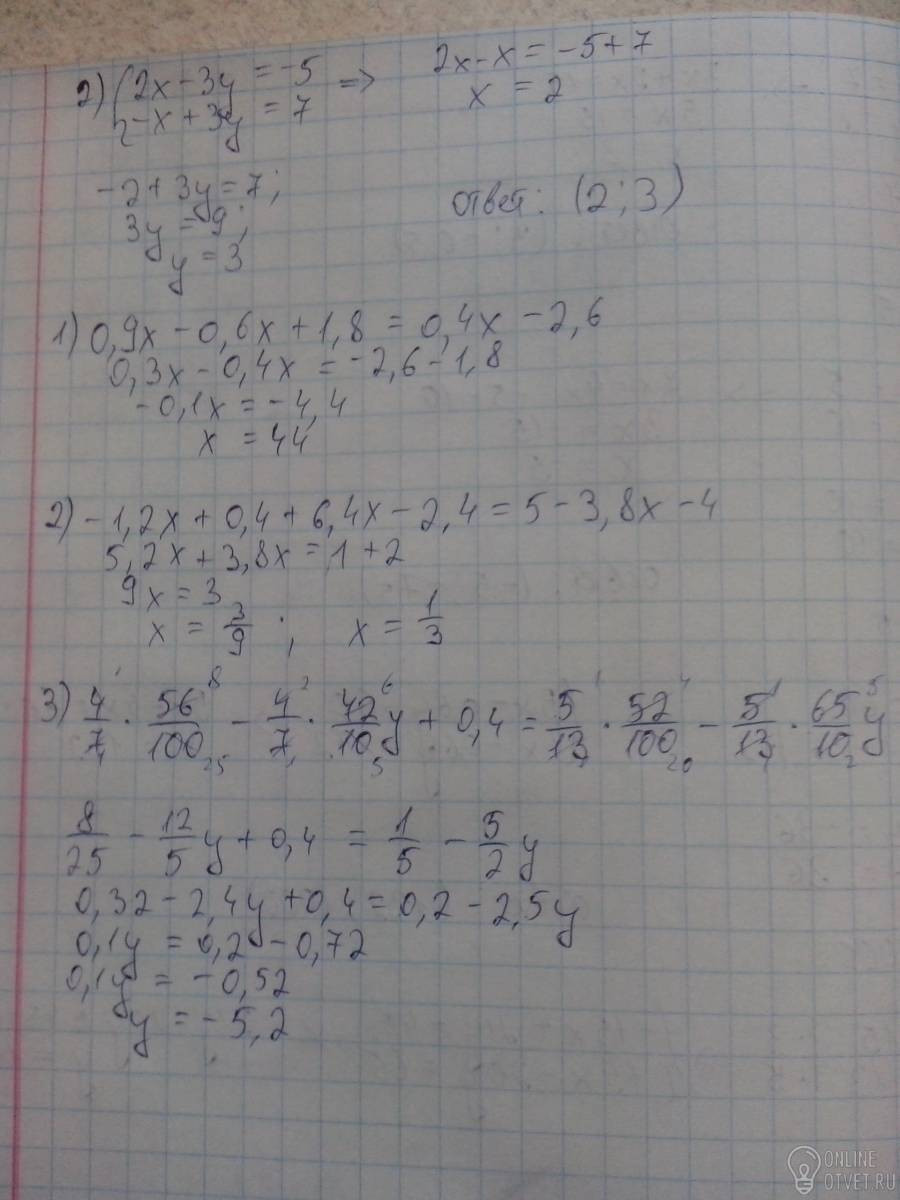 2) { 2x - 3y = -5 => 2x - x = -5 + 7
-x + 3y = 7 x = 2
-2 + 3y = 7;
3y = 9;
y = 3
ответ: (2; 3)
1) 0,9x - 0,6x + 1,8 = 0,4x - 2,6
0,3x - 0,4x = -2,6 - 1,8
-0,1x = -4,4
x = 44
2) -1,2x + 0,4 + 6,4x - 2,4 = 5 - 3,8x - 4
5,2x + 3,8x = 1 + 2
9x = 3
x = 3/9 ; x = 1/3
3) 4/7 · 56/100 - 4/7 · 42/10 y + 0,4 = 5/13 · 52/100 - 5/13 · 65/10 y
8/25 - 12/5 y + 0,4 = 1/5 - 5/2 y
0,32 - 2,4y + 0,4 = 0,2 - 2,5y
0,1y = 0,2 - 0,72
0,1y = -0,52
y = -5,2
ONLINE
OTVET.RU